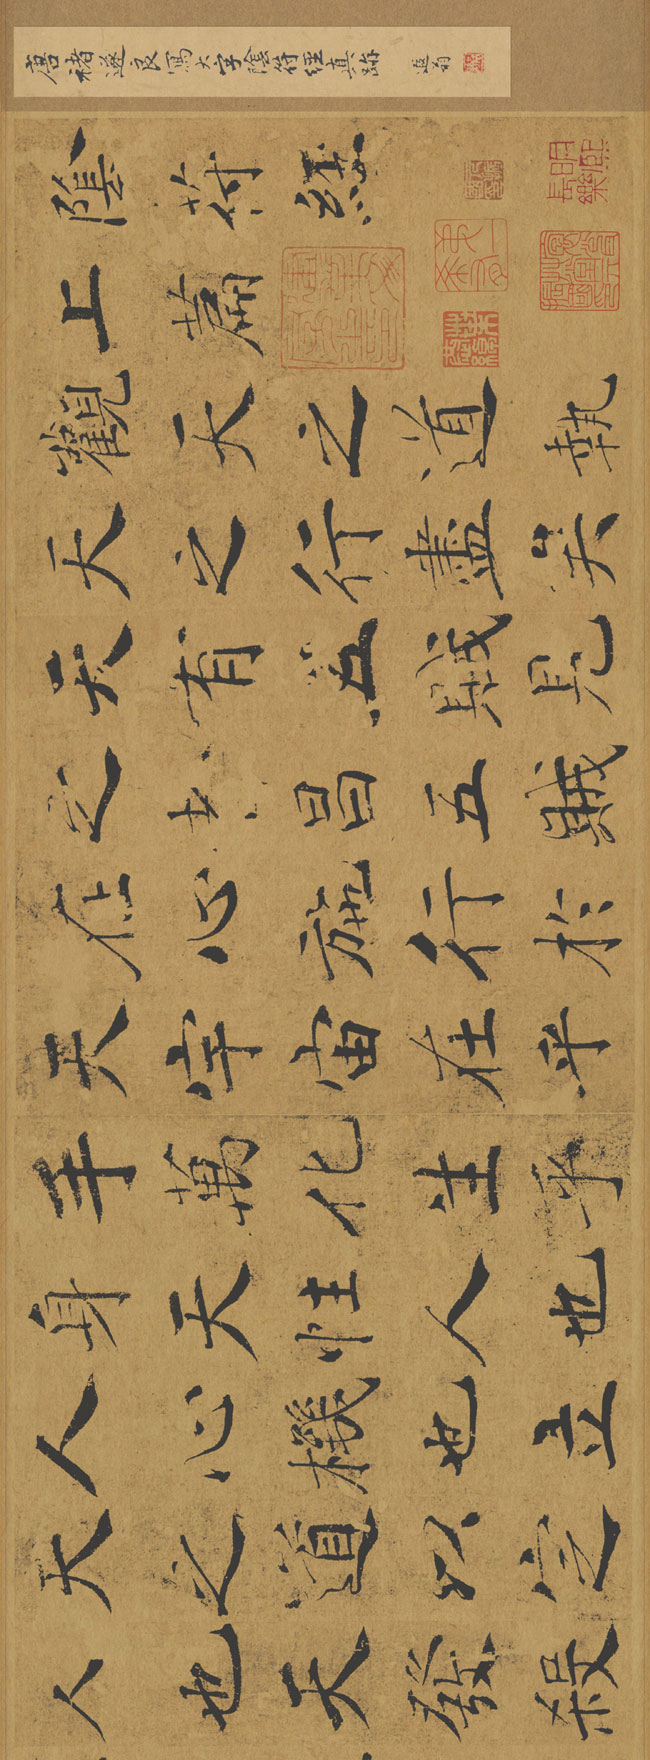 唐褚遂良寫大字陰符經真跡 遐翁
陰符經
上篇
觀天之道執
天之行盡矣
天有五賊見
之者昌五賊
在心施行於
天宇宙在乎
手萬化生乎
身天性人也
人心機也立
天之道以定
人也天發殺